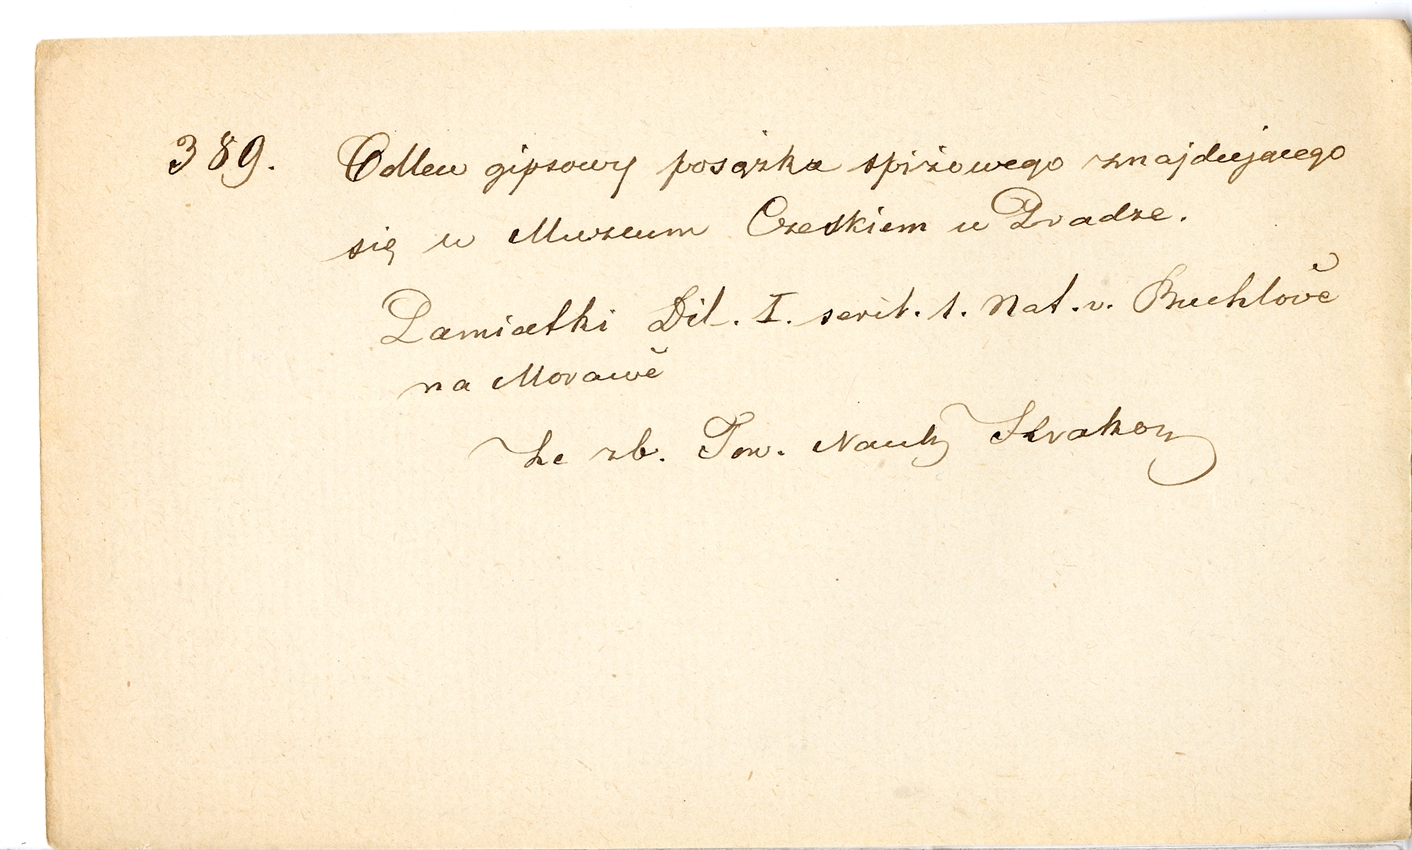 389. Odlew gipsowy posążka spiżowego znajdującego
się w Muzeum Czeskiem w Pradze.
Pamiatki Dil. I. serit. 1. Nat. v. Buchlově
na Morawě
Ze zb. Tow. Nauk Krakow